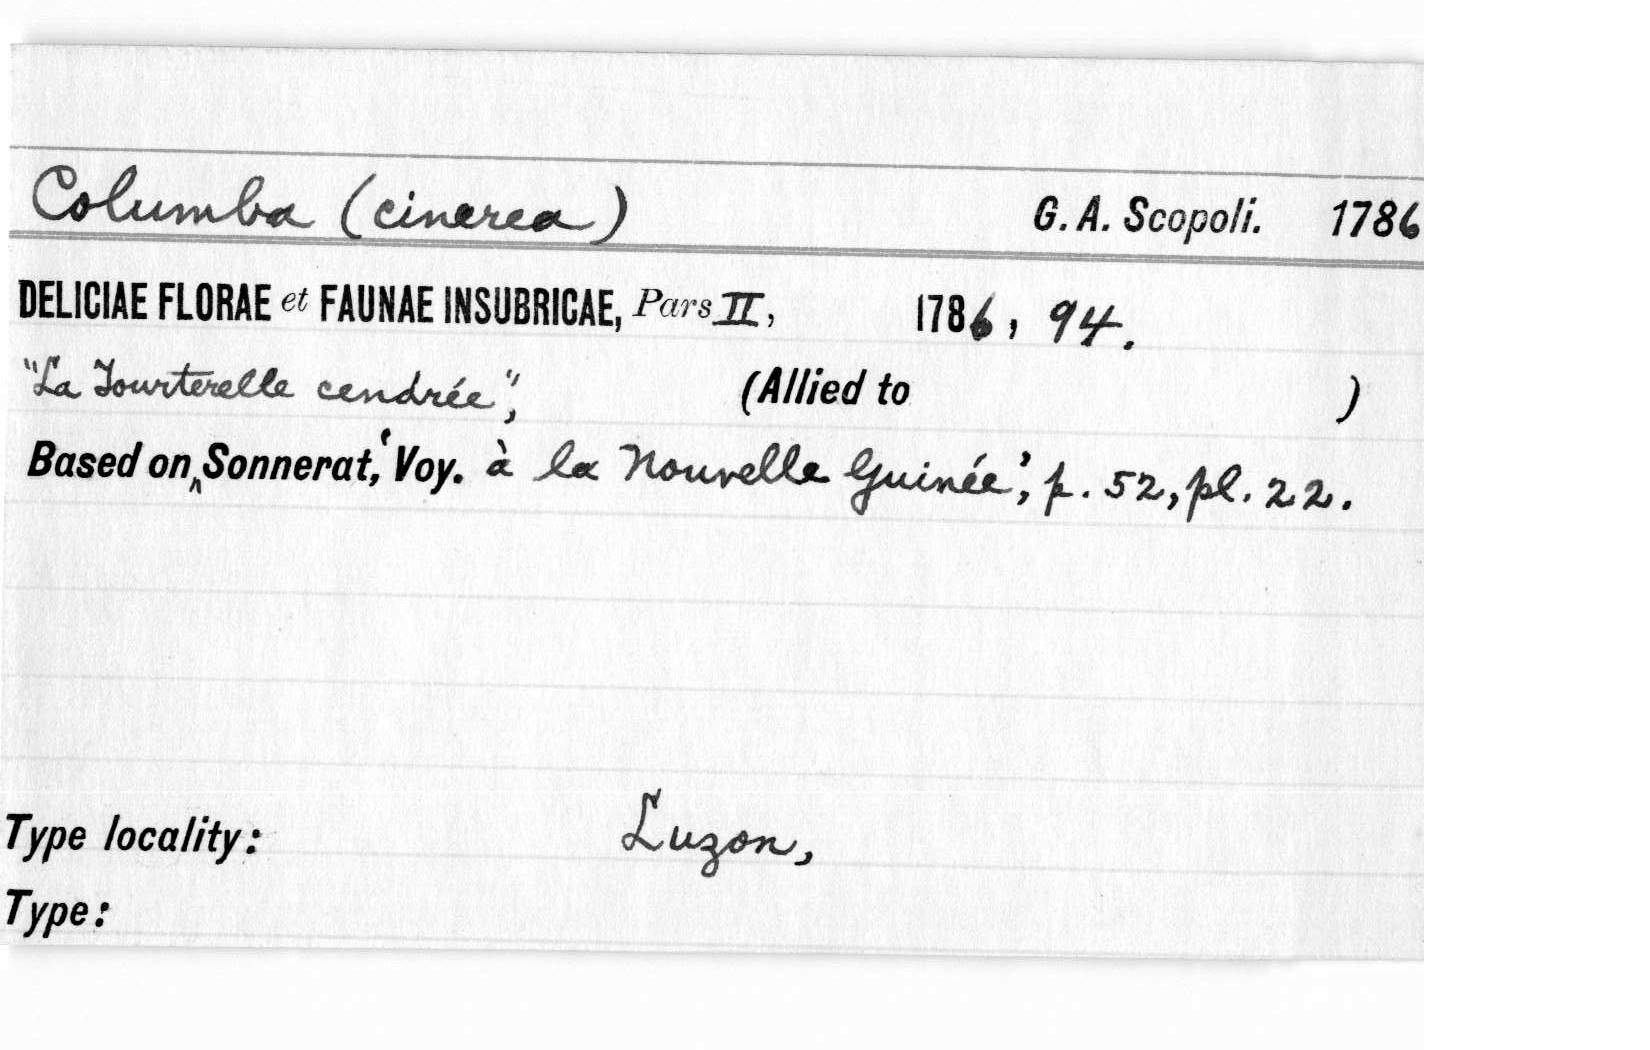 Columba (cinerea) G. A. Scopoli. 1786
DELICIAE FLORAE et FAUNAE INSUBRICAE, Pars II, 1786, 94.
"La Tourterelle cendrée", (Allied to )
Based on ‸ Sonnerat, 'Voy. à la Nouvelle Guinée', p. 52, pl. 22.
Type locality: Luzon,
Type: